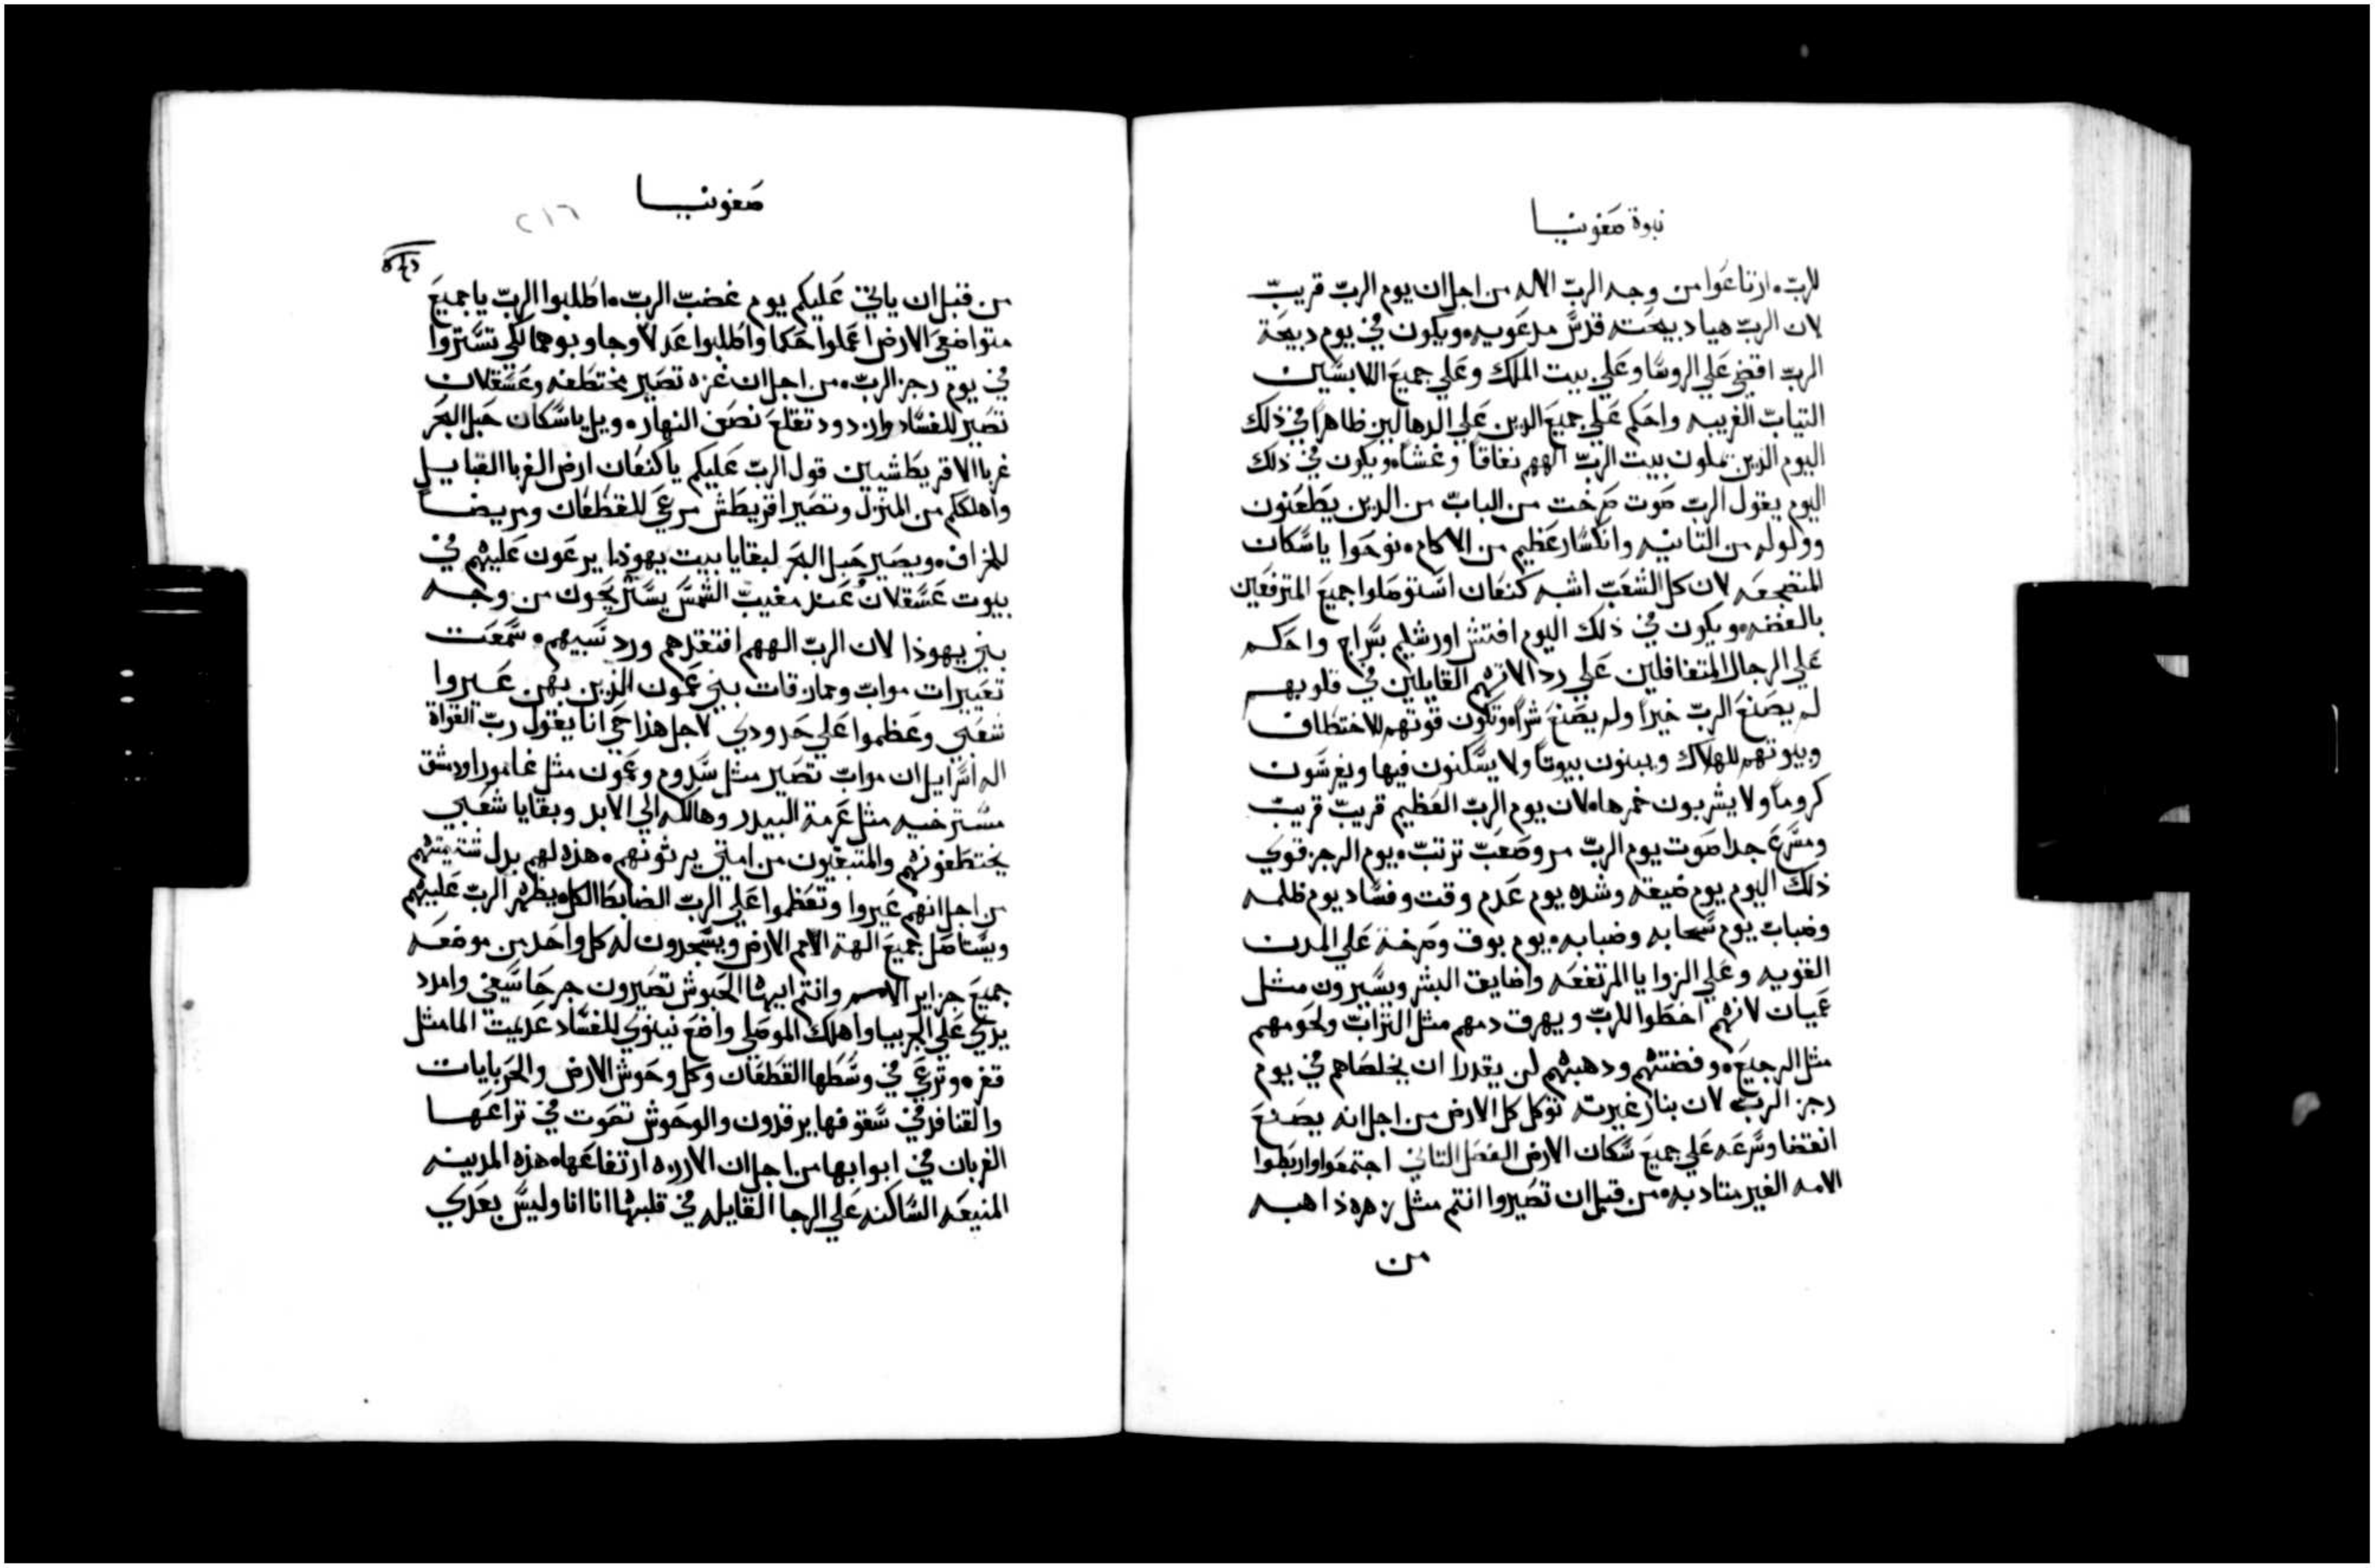 نبوة صفونيا
للرب. ارتاعوا من وجه الرب الاله من اجل ان يوم الرب قريب
لان الرب هيا دبيحته قدس مدعويه. ويكون في يوم دبيحة
الرب اقضي علي الروسا وعلي بيت الملك وعلي جميع اللابسين
التياب الغريبه واحكم علي جميع الدين علي الدهاليز ظاهرا في ذلك
اليوم الذين يملون بيت الرب الههم نفاقا وغشا. ويكون في ذلك
اليوم يقول الرب صوت صرخت من الباب من الدين يطعنون
وولوله من التانيه وانكسار عظيم من الاكام. نوحوا ياسكان
المنضجعه لان كل الشعب اشبه كنعان استوصلوا جميع المترفعين
بالفضه. ويكون في ذلك اليوم افتش اورشليم بسراج واحكم
علي الرجال المتغافلين علي رد الاتهم القايلين في قلوبهم
لم يصنع الرب خيرا ولم يصنع شرا. وتكون قوتهم للاختطاف
وبيوتهم للهلاك ويبنون بيوتا ولا يسكنون فيها ويغرسون
كروما ولا يشربون خمرها. لان يوم الرب العظيم قريب قريب
ومسرع جدا صوت يوم الرب مر وصعب ترتب. يوم الرجز قوي
ذلك اليوم يوم ضيقه وشده يوم عدم وقت وفساد يوم ظلمه
وضباب يوم سحابه وضبابه. يوم بوق وصرخة علي المدن
القويه وعلي الزوايا المرتفعه واضايق البشر ويسيرون مثل
عميان لانهم اخطوا للرب ويهرق دمهم مثل التراب ولحومهم
مثل الرجيع. وفضتهم ودهبهم لن يقدرا ان يخلصاهم في يوم
رجز الرب لان بنار غيرته توكل كل الارض من اجل انه يصنع
انقضا وسرعه علي جميع سكان الارض الفصل التاني اجتمعوا واربطوا
الامه الغير متادبه. من قبل ان تصيروا انتم مثل زهره ذاهبه
من
صفونيا
٢١٦
من قبل ان ياتي عليكم يوم غضب الرب. اطلبوا الرب ياجميع
متواضعي الارض اعملوا حكما واطلبوا عدلا وجاوبوهما لكي تستتروا
في يوم رجز الرب. من اجل ان غزه تصير مختطفه وعسقلان
تصير للفساد وازدود تقلع نصف النهار. ويل ياسكان حبل البحر
غربا الاقريطشيين قول الرب عليكم ياكنعان ارض الغربا القبايل
واهلككم من المنزل وتصير اقريطش مرعي للقطعان ومربضا
للخراف. ويصير حبل البحر لبقايا بيت يهوذا يرعون عليهم في
بيوت عسقلان عند مغيب الشمس يستريحون من وجه
بني يهوذا لان الرب الههم افتقدهم ورد سبيهم. سمعت
تعييرات مواب وممازقات بني عمون الذين بهن عيروا
شعبي وعظموا علي حدودي لاجل هذا حي انا يقول رب القواة
اله اسراييل ان مواب تصير مثل سدوم وعمون مثل غامورا ودمشق
مسترخيه مثل عرمة البيدر وهالكه الي الابد وبقايا شعبي
يختطفونهم والمتبقيون من امتي يرثونهم. هذه لهم بدل شتيمتهم
من اجل انهم عيروا وتعظموا علي الرب الضابط الكل. يظهر الرب عليهم
ويستاصل جميع الهة الامم الارض ويسجدون له كل واحد من موضعه
جميع جزاير الامم وانتم ايها الحبوش تصيرون جرحا سيفي وامدد
يدي علي الجربيا واهلك الموصلي واضع نينوي للفساد عديمت الما مثل
قفره وترعي في وسطها القطعان وكل وحوش الارض والحربايات
والقنافد في سقوفها يرقدون والوحوش تصوت في تراعها
الغربان في ابوابها من اجل ان الارزه ارتفاعها. هذه المدينه
المنيعه الساكنه علي الرجا القايله في قلبها انا انا وليس بعدي